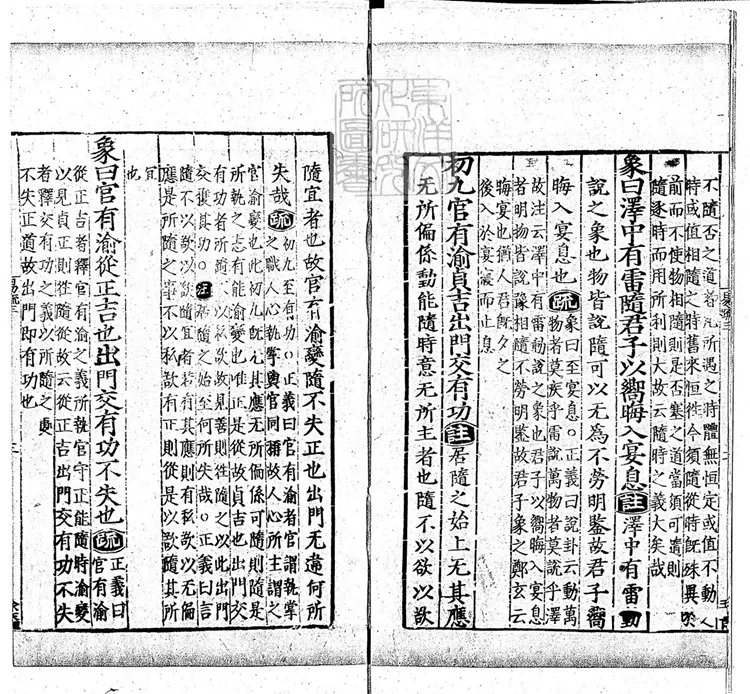 不隨否之道者凡所遇之時體無恒定或值不動之
時或值相隨之時舊來恒徃今須隨從時既殊異於
前而不使物相隨則是否塞之道當須可遣則
隨逐時而用所利則大故云隨時之義大矣哉
象曰澤中有雷隨君子以嚮晦入宴息註澤中有雷動
說之象也物皆說隨可以无為不勞明鍳故君子嚮
晦入宴息也疏象曰至宴息○正義曰說卦云動萬
物者莫疾乎雷說萬物者莫說乎澤
故注云澤中有雷動說之象也君子以嚮晦入宴息
者明物皆說豫相隨不勞明鍳故君子象之鄭玄云
晦宴也猶人君既夕之
後入於宴寢而止息
初九官有渝貞吉出門交有功註居隨之始上无其應
无所偏係動能隨時意无所主者也隨不以欲以欲
隨宜者也故官有渝變隨不失正也出門无違何所
失哉疏初九至有功○正義曰官有渝者官謂執掌
之職人心執掌與官同稱故人心所主謂之
官渝變也此初九既无其應无所偏係可隨則隨是
所執之志有能渝變也唯正是從故貞吉也出門交
有功者所隨不以私欲故見善則徃隨之以此出門
交獲其功○註居隨之始至何所失哉○正義曰言
隨不以欲以欲隨宜者若有其應則有私欲以无偏
應是所隨之事不以私欲有正則從是以欲隨其所
宜也
象曰官有渝從正吉也出門交有功不失也疏正義曰
官有渝
從正吉者釋官有渝之義所執官守正能隨時渝變
以見貞正則徃隨從故云從正吉出門交有功不失
者釋交有功之義以所隨之處
不失正道故出門即有功也